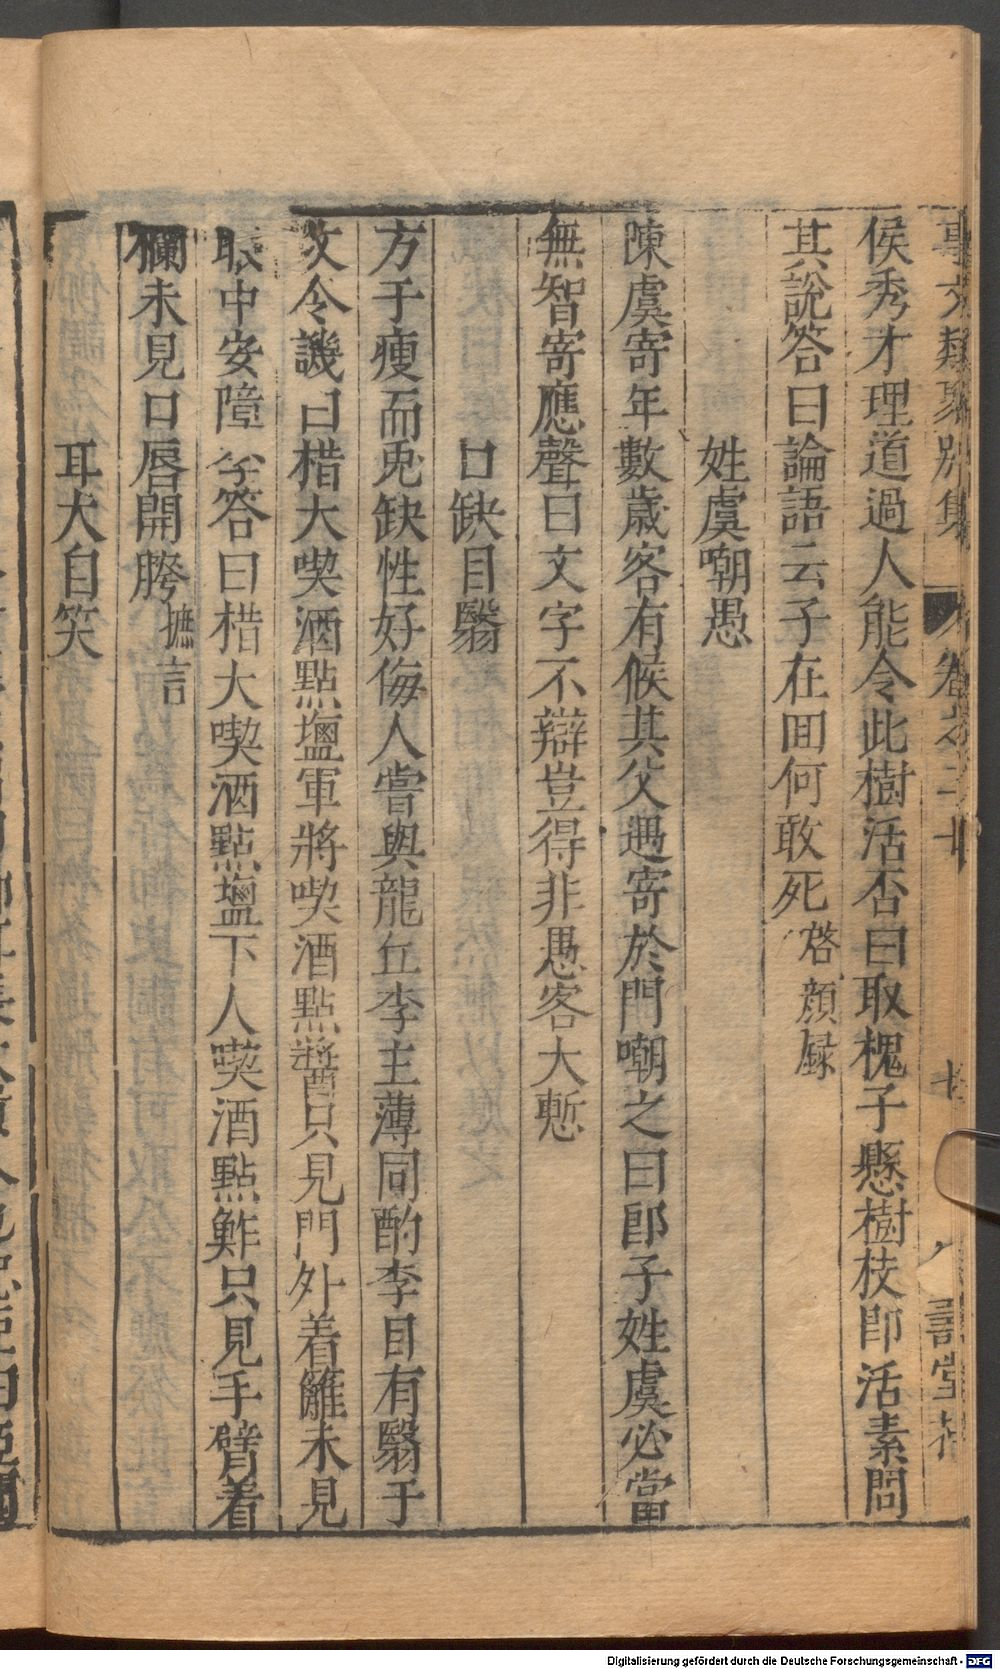 事文類聚別集 卷之二十
壽堂
侯秀才理道過人能令此樹活否曰取槐子懸樹枝即活素問
其說答曰論語云子在囬何敢死啓顏録
姓虞嘲愚
陳虞寄年數歲客有候其父遇寄於門嘲之曰郎子姓虞必當
無智寄應聲曰文字不辯豈得非愚客大慙
口缺目翳
方于瘦而兎缺性好侮人嘗與龍丘李主薄同酌李目有翳于
攺令譏曰楷大喫酒點塩軍將喫酒點醬只見門外着籬未見
眼中安障答曰楷大喫酒點塩下人喫酒點鮓只見手臂着
襴未見口唇開胯摭言
耳犬自笑
Digitalisierung gefördert durch die Deutsche Forschungsgemeinschaft - DFG